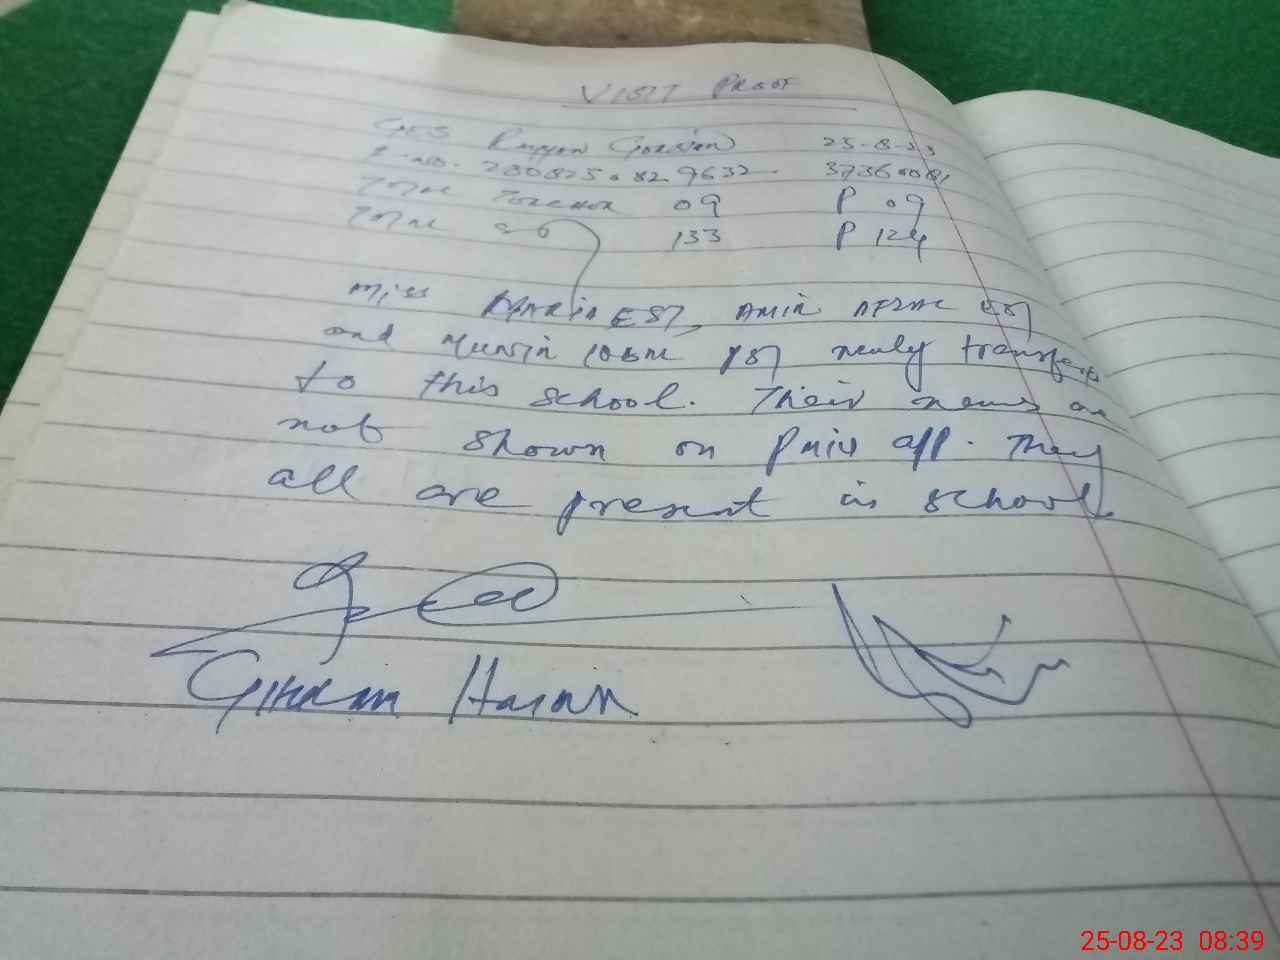 VISIT PROOF
GES Gordon 25-8-23
280825.829632. 37364081
Total 09 P 09
Total 133 P 124
Miss Maria EST, Amir Afzal EST
and PST newly transfer
to this school. Their names are
not shown on PMIU app. They
all are present in school
Ghulam Hasan
25-08-23 08:39